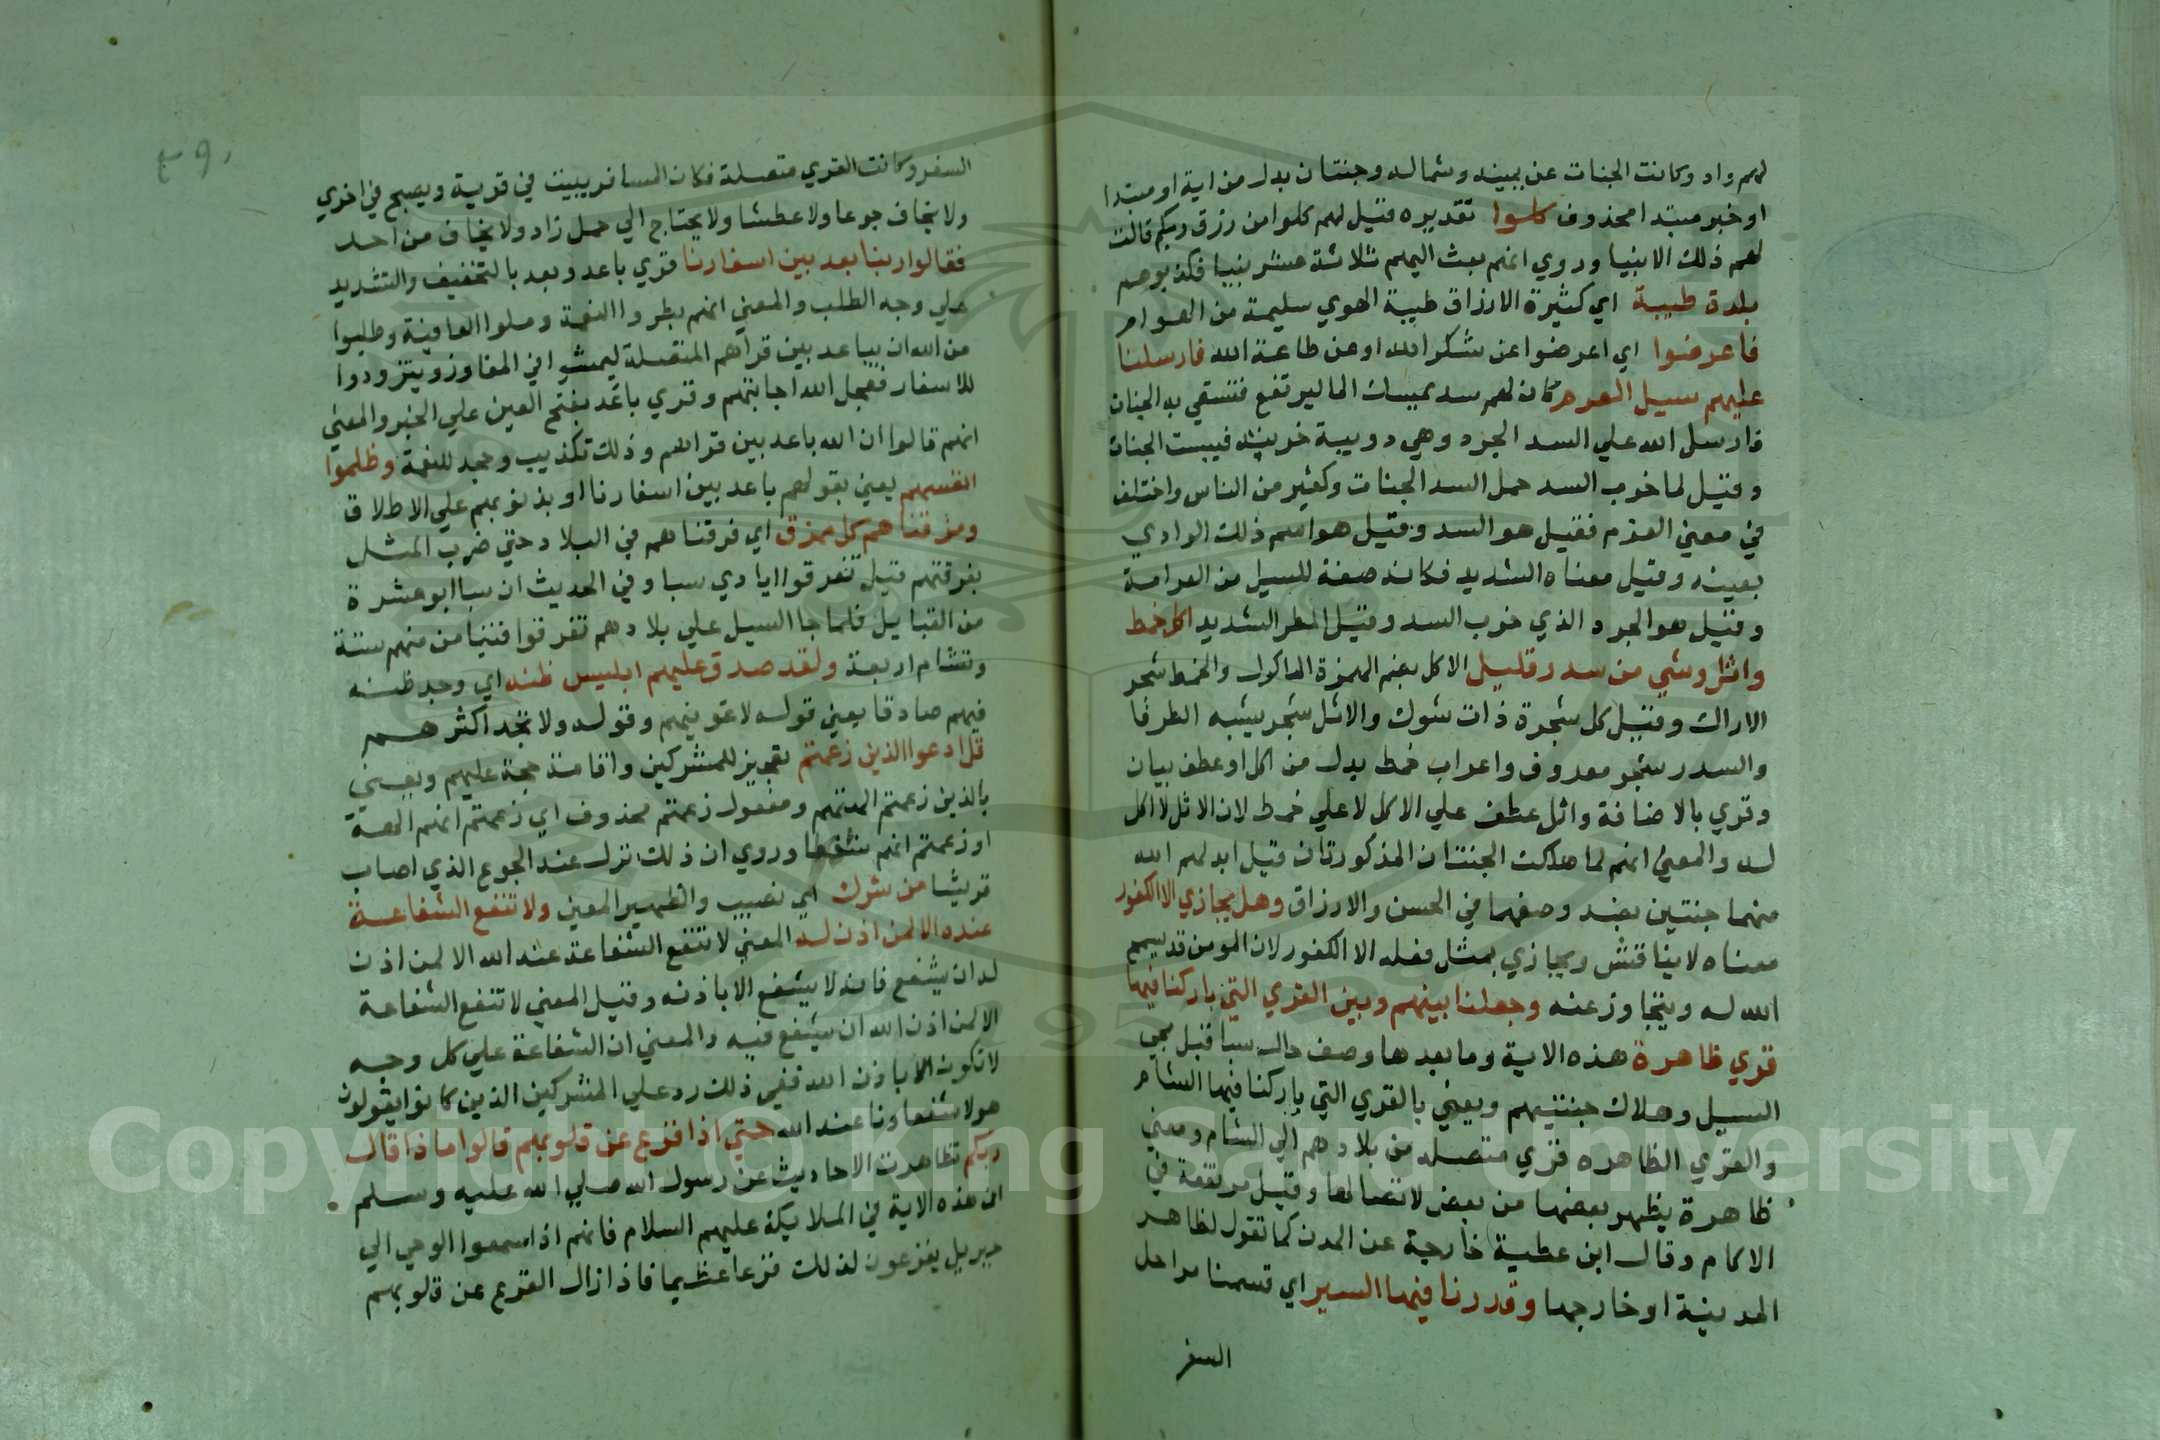 لهم واد وكانت الجنات عن يمينه وشماله وجنتان بدل من اية او مبتدا
او خبر مبتدا محذوف كلوا تقديره قيل لهم كلوا من رزق ربكم قالت
لهم ذلك الانبيا وروي انهم بعث اليهم ثلاثة عشر نبيا فكذبوهم
بلدة طيبة اي كثيرة الارزاق طيبة الهوي سليمة من الهوام
فاعرضوا اي اعرضوا عن شكر الله او عن طاعة الله فارسلنا
عليهم سيل العرم كان لهم سد يمسك الما ليرتفع فتسقي به الجنات
فارسل الله علي السد الجرد وهي دويبة خربته فيبست الجنات
وقيل لما خرب السد حمل السد الجنات وكثير من الناس واختلف
في معني العرم فقيل هو السد وقيل هو اسم ذلك الوادي
بعينه وقيل معناه الشديد فكانه صفة للسيل من العرامة
وقيل هو الجرد الذي خرب السد وقيل المطر الشديد اكل خمط
واثل وشي من سدر قليل الاكل بضم الهمزة الماكول والخمط شجر
الاراك وقيل كل شجرة ذات شوك والاثل شجر يشبه الطرفا
والسدر شجر معروف واعراب خمط بدل من اكل او عطف بيان
وقري بالاضافة واثل عطف علي الاكل لا علي خمط لان الاثل لا اكل
له والمعني انهم لما هلكت الجنتان المذكورتان قيل ابدلهم الله
منهما جنتين بضد وصفهما في الحسن والارزاق وهل يجازي الا الكفور
معناه لا يناقش ويجازي بمثل فعله الا الكفور لان المومن قد يسمح
الله له ويتجاوز عنه وجعلنا بينهم وبين القري التي باركنا فيها
قري ظاهرة هذه الاية وما بعدها وصف حال سبا قبل مجي
السيل وهلاك جنتيهم ويعني بالقري التي باركنا فيها الشام
والقري الظاهره قري متصلة من بلادهم الي الشام ومعني
ظاهرة يظهر بعضها من بعض لاتصالها وقيل مرتفعة في
الاكام وقال ابن عطية خارجة عن المدن كما تقول لظاهر
المدينة او خارجها وقدرنا فيها السير اي قسمنا مراحل
السفر
السفر وكانت القري متصلة فكان المسافر يبيت في قرية ويصبح في اخري
ولا يخاف جوعا ولا عطشا ولا يحتاج الي حمل زاد ولا يخاف من احد
فقالوا ربنا بعد بين اسفارنا قري باعد وبعد بالتخفيف والتشديد
علي وجه الطلب والمعني انهم بطروا النعمة وملوا العافية وطلبوا
من الله ان يباعد بين قراهم المتصلة ليمشوا في المفاوز ويتزودوا
للاسفار فعجل الله اجابتهم وقري باعد بفتح العين علي الخبر والمعني
انهم قالوا ان الله باعد بين قراهم وذلك تكذيب وجحد للنعمة وظلموا
انفسهم يعني بقولهم باعد بين اسفارنا او بذنوبهم علي الاطلاق
ومزقناهم كل ممزق اي فرقناهم في البلاد حتي ضرب المثل
بفرقتهم قيل تفرقوا ايادي سبا وفي الحديث ان سبا ابو عشرة
من القبايل فلما جا السيل علي بلادهم تفرقوا فتيامن منهم ستة
وتشام اربعة ولقد صدق عليهم ابليس ظنه اي وجد ظنه
فيهم صادقا يعني قوله لاغوينهم وقوله ولا تجد اكثرهم
قل ادعوا الذين زعمتم تعجيز للمشركين واقامة حجة عليهم ويعني
بالذين زعمتم الهتهم ومفعول زعمتم محذوف اي زعمتم انهم الهة
او زعمتم انهم شفعا وروي ان ذلك نزل عند الجوع الذي اصاب
قريشا من شرك اي نصيب والظهير المعين ولا تنفع الشفاعة
عنده الا لمن اذن له المعني لا تنفع الشفاعة عند الله الا لمن اذن
له ان يشفع فانه لا يشفع الا باذنه وقيل المعني لا تنفع الشفاعة
الا لمن اذن الله ان يشفع فيه والمعني ان الشفاعة علي كل وجه
لا تكون الا باذن الله ففي ذلك رد علي المشركين الذين كانوا يقولون
هولا شفعاونا عند الله حتي اذا فزع عن قلوبهم قالوا ماذا قال
ربكم تظاهرت الاحاديث عن رسول الله صلي الله عليه وسلم
ان هذه الاية في الملايكة عليهم السلام فانهم اذا سمعوا الوحي الي
جبريل يفزعون لذلك فزعا عظيما فاذا زال الفزع عن قلوبهم
Copyright © King Saud University